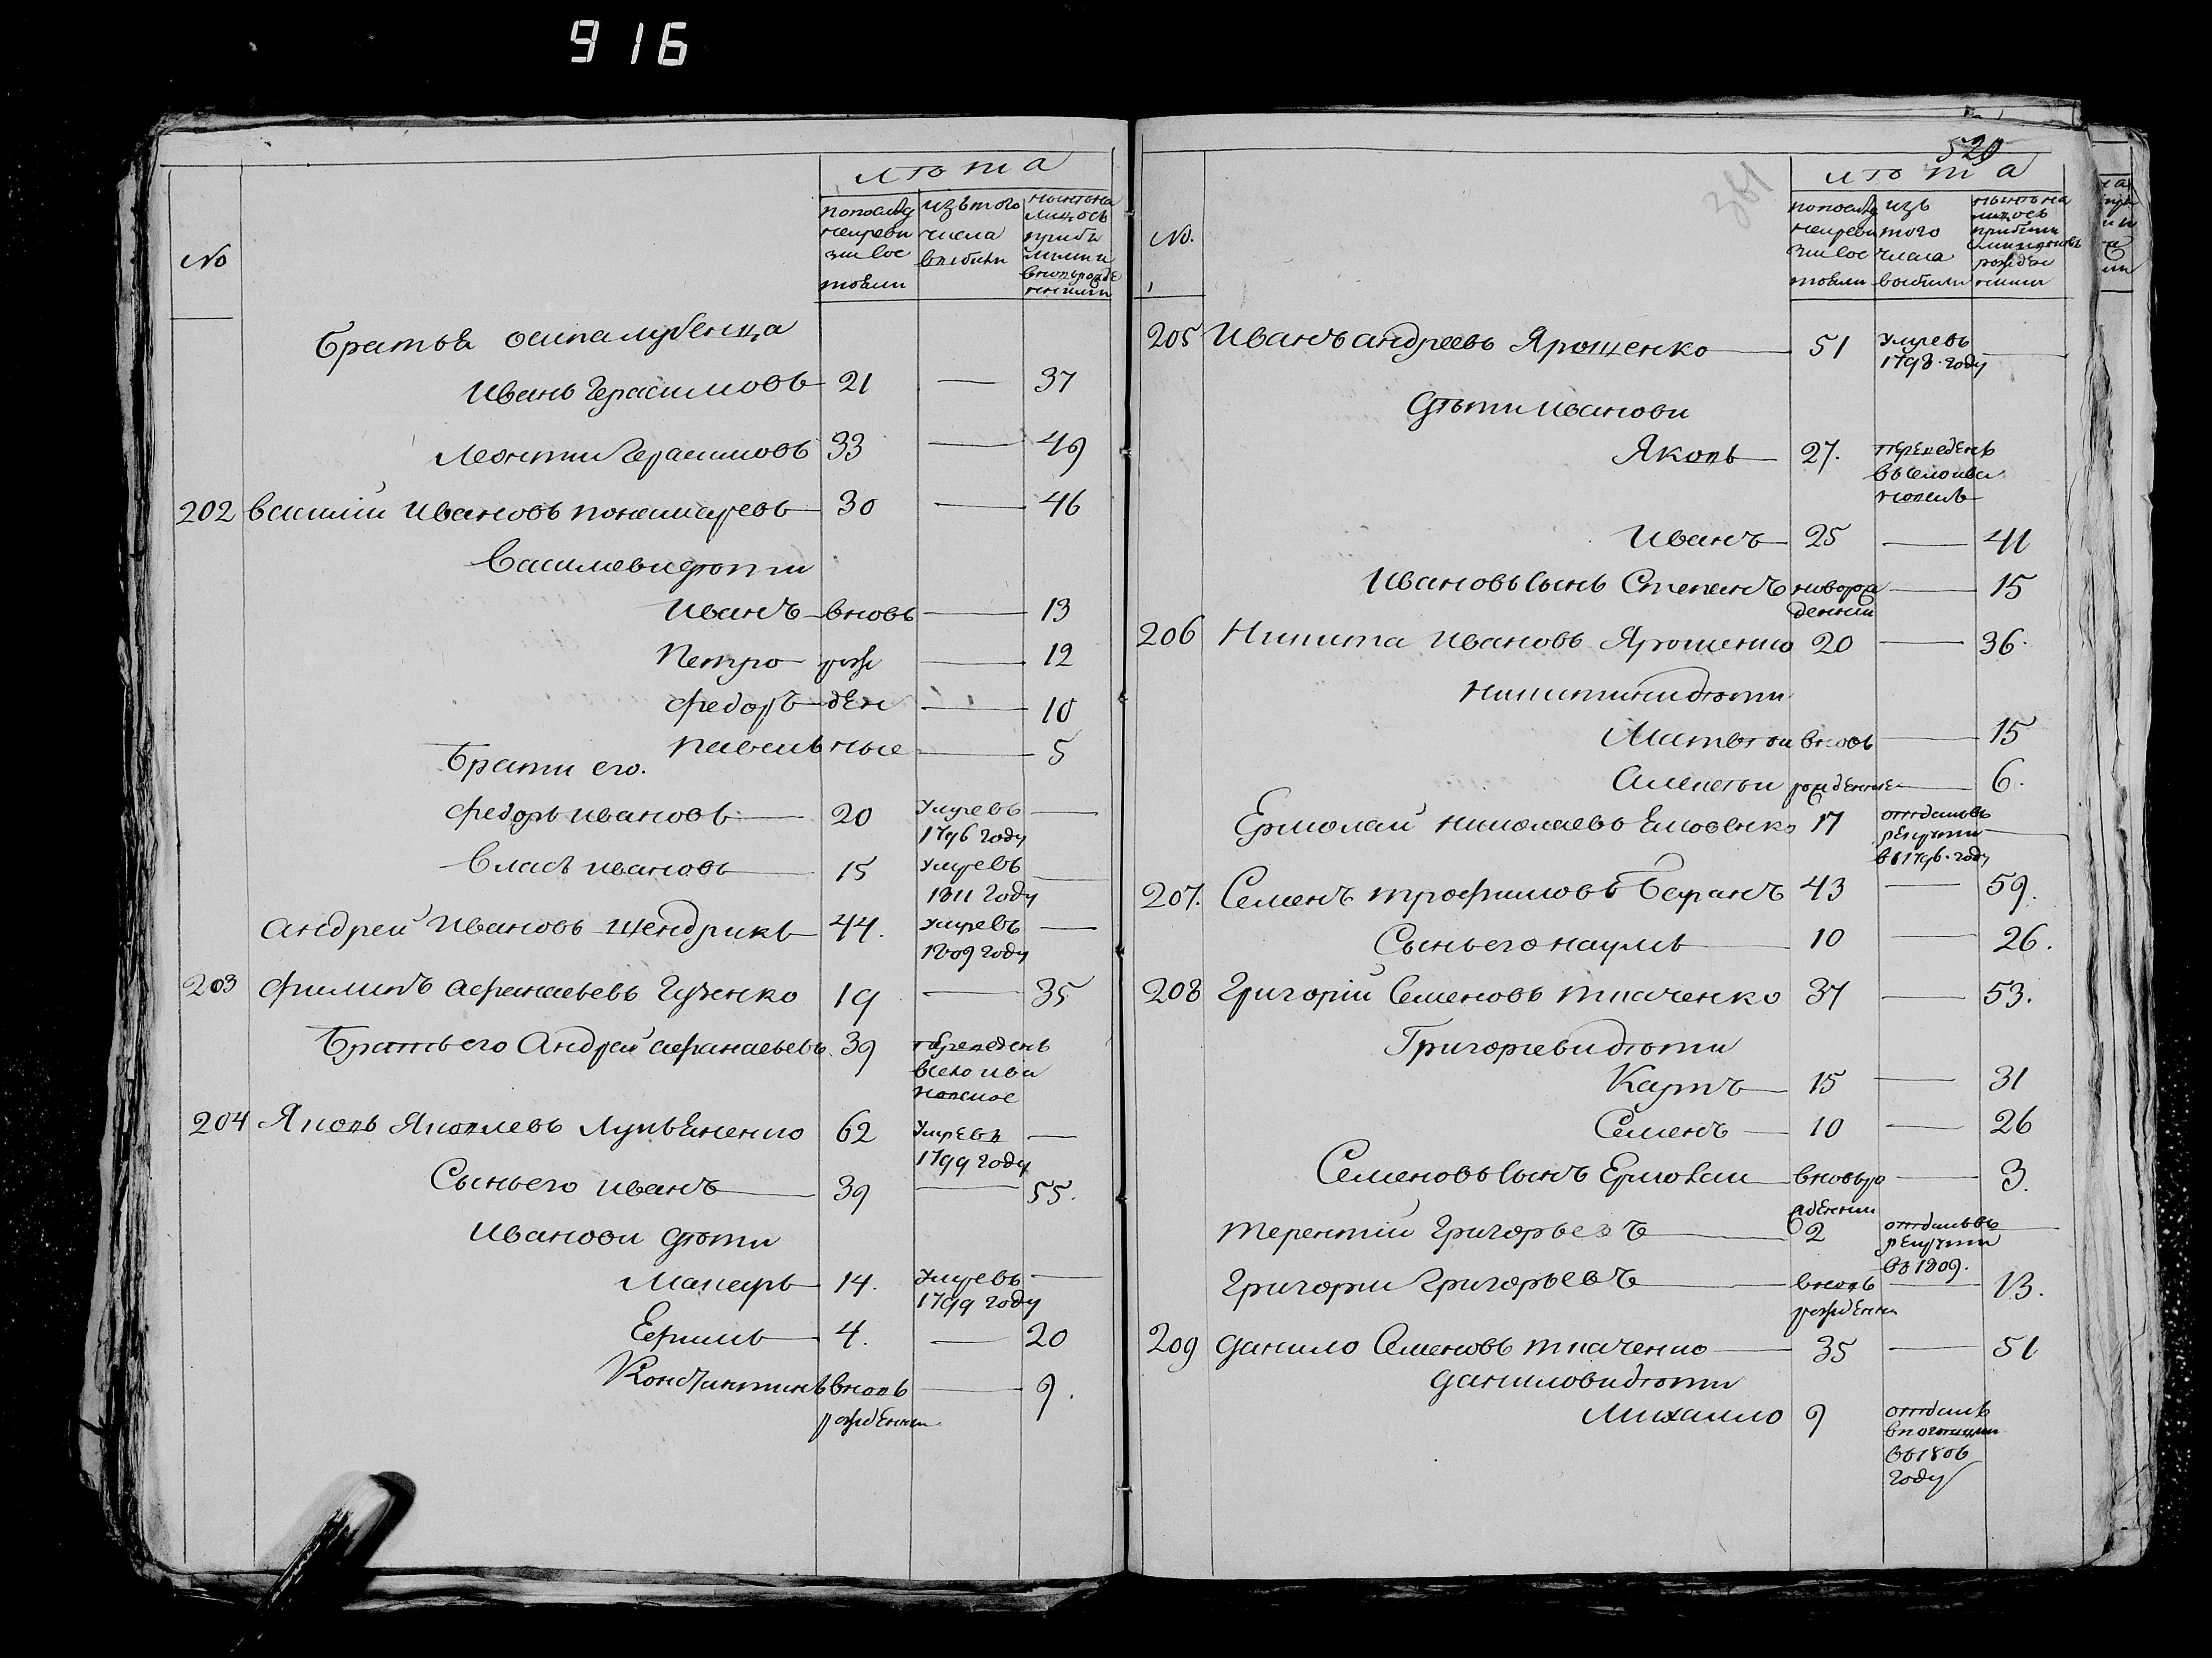 916
лѣта
№
по послѣд
ней реви
зии сос
тояли
изъ того
числа
выбили
нынѣ на
лицо съ
прибы
лыми и
вновь рожде
нными
Братья осипа лубенца
Иванъ Герасимовъ 21 — 37
Леонтий Герасимовъ 33 — 49
202 Василий Ивановъ понамаревъ 30 — 46
Василеви дѣти
Иванъ вновь — 13
Петро рож — 12
Федоръ ден — 10
Павелъ ные — 5
Брати его.
Федоръ ивановъ 20 умре въ —
1796 году
Власъ ивановъ 15 умре въ —
1811 году
Андрей Ивановъ Щендрикъ 44. умре въ —
1809 году
203 Филипъ афанасьевъ Гученко 19 — 35
Братъ его Андрей афанасьевъ 39 переведенъ
в село ива
новское
204 Яковъ Яковлевъ Лукьяненко 62 умре въ —
1799 году
Сынъ его иванъ 39 — 55.
Иванови дѣти
Макаръ 14. умре въ —
1799 году
Ефимъ 4. — 20
Константинъ вновь — 9.
рожденны
520
361
лѣта
№.
по послѣд
ней реви
зии сос
тояли
изъ
того
числа
выбили
нынѣ на
лицо съ
прибыли
ми и новь
рожден
ними
205 Иванъ андреевъ Ярошенко 51 умре въ —
1798. году
Дѣти Иванови
Яковъ 27. переведенъ
въ село ива
Иванъ 25 — 41
Ивановъ сынъ Степанъ новорож — 15
денны
206 Никита Ивановъ Ярошенко 20 — 36.
Никитини дѣти
Матвѣи вновь — 15
Алексѣи рожденые — 6.
Ермолай николаевъ 17 отдан въ
рекруты —
въ 1796. году
207. Семенъ трофимовъ Баранъ 43 — 59.
Сынъ его наумъ 10 — 26.
208 Григорий Семеновъ ткаченко 37 — 53.
Григориеви дѣти
Карпъ 15 — 31
Семенъ 10 — 26
Семеновъ сынъ Ермолаи вновь ро — 3.
жденны
Терентий Григорьевъ 2 отдан въ —
рекруты
въ 1809.
Григории Григорьевъ вновь — 13.
рожденны
209 Данило Семеновъ ткаченко 35 — 51
Данилови дѣти
Михайло 9 отданъ
въ 1806
году